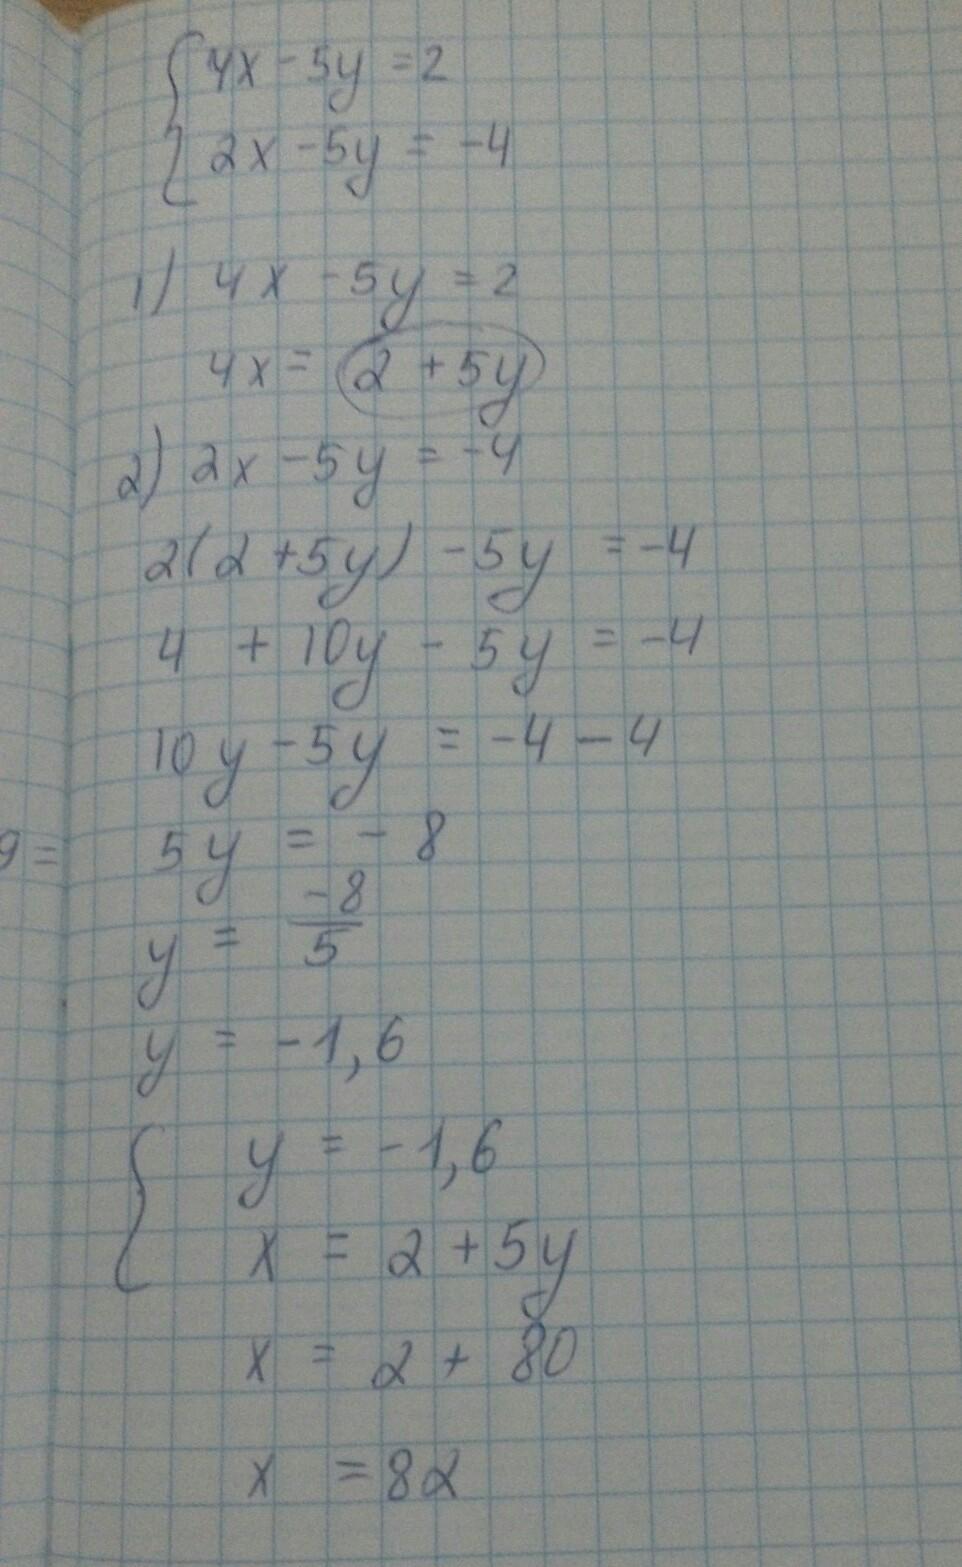 4x - 5y = 2
2x - 5y = -4
1) 4x - 5y = 2
4x = 2 + 5y
2) 2x - 5y = -4
2(2 + 5y) - 5y = -4
4 + 10y - 5y = -4
10y - 5y = -4 - 4
9 =
5y = - 8
y = -8/5
y = -1,6
y = -1,6
x = 2 + 5y
x = 2 + 80
x = 82